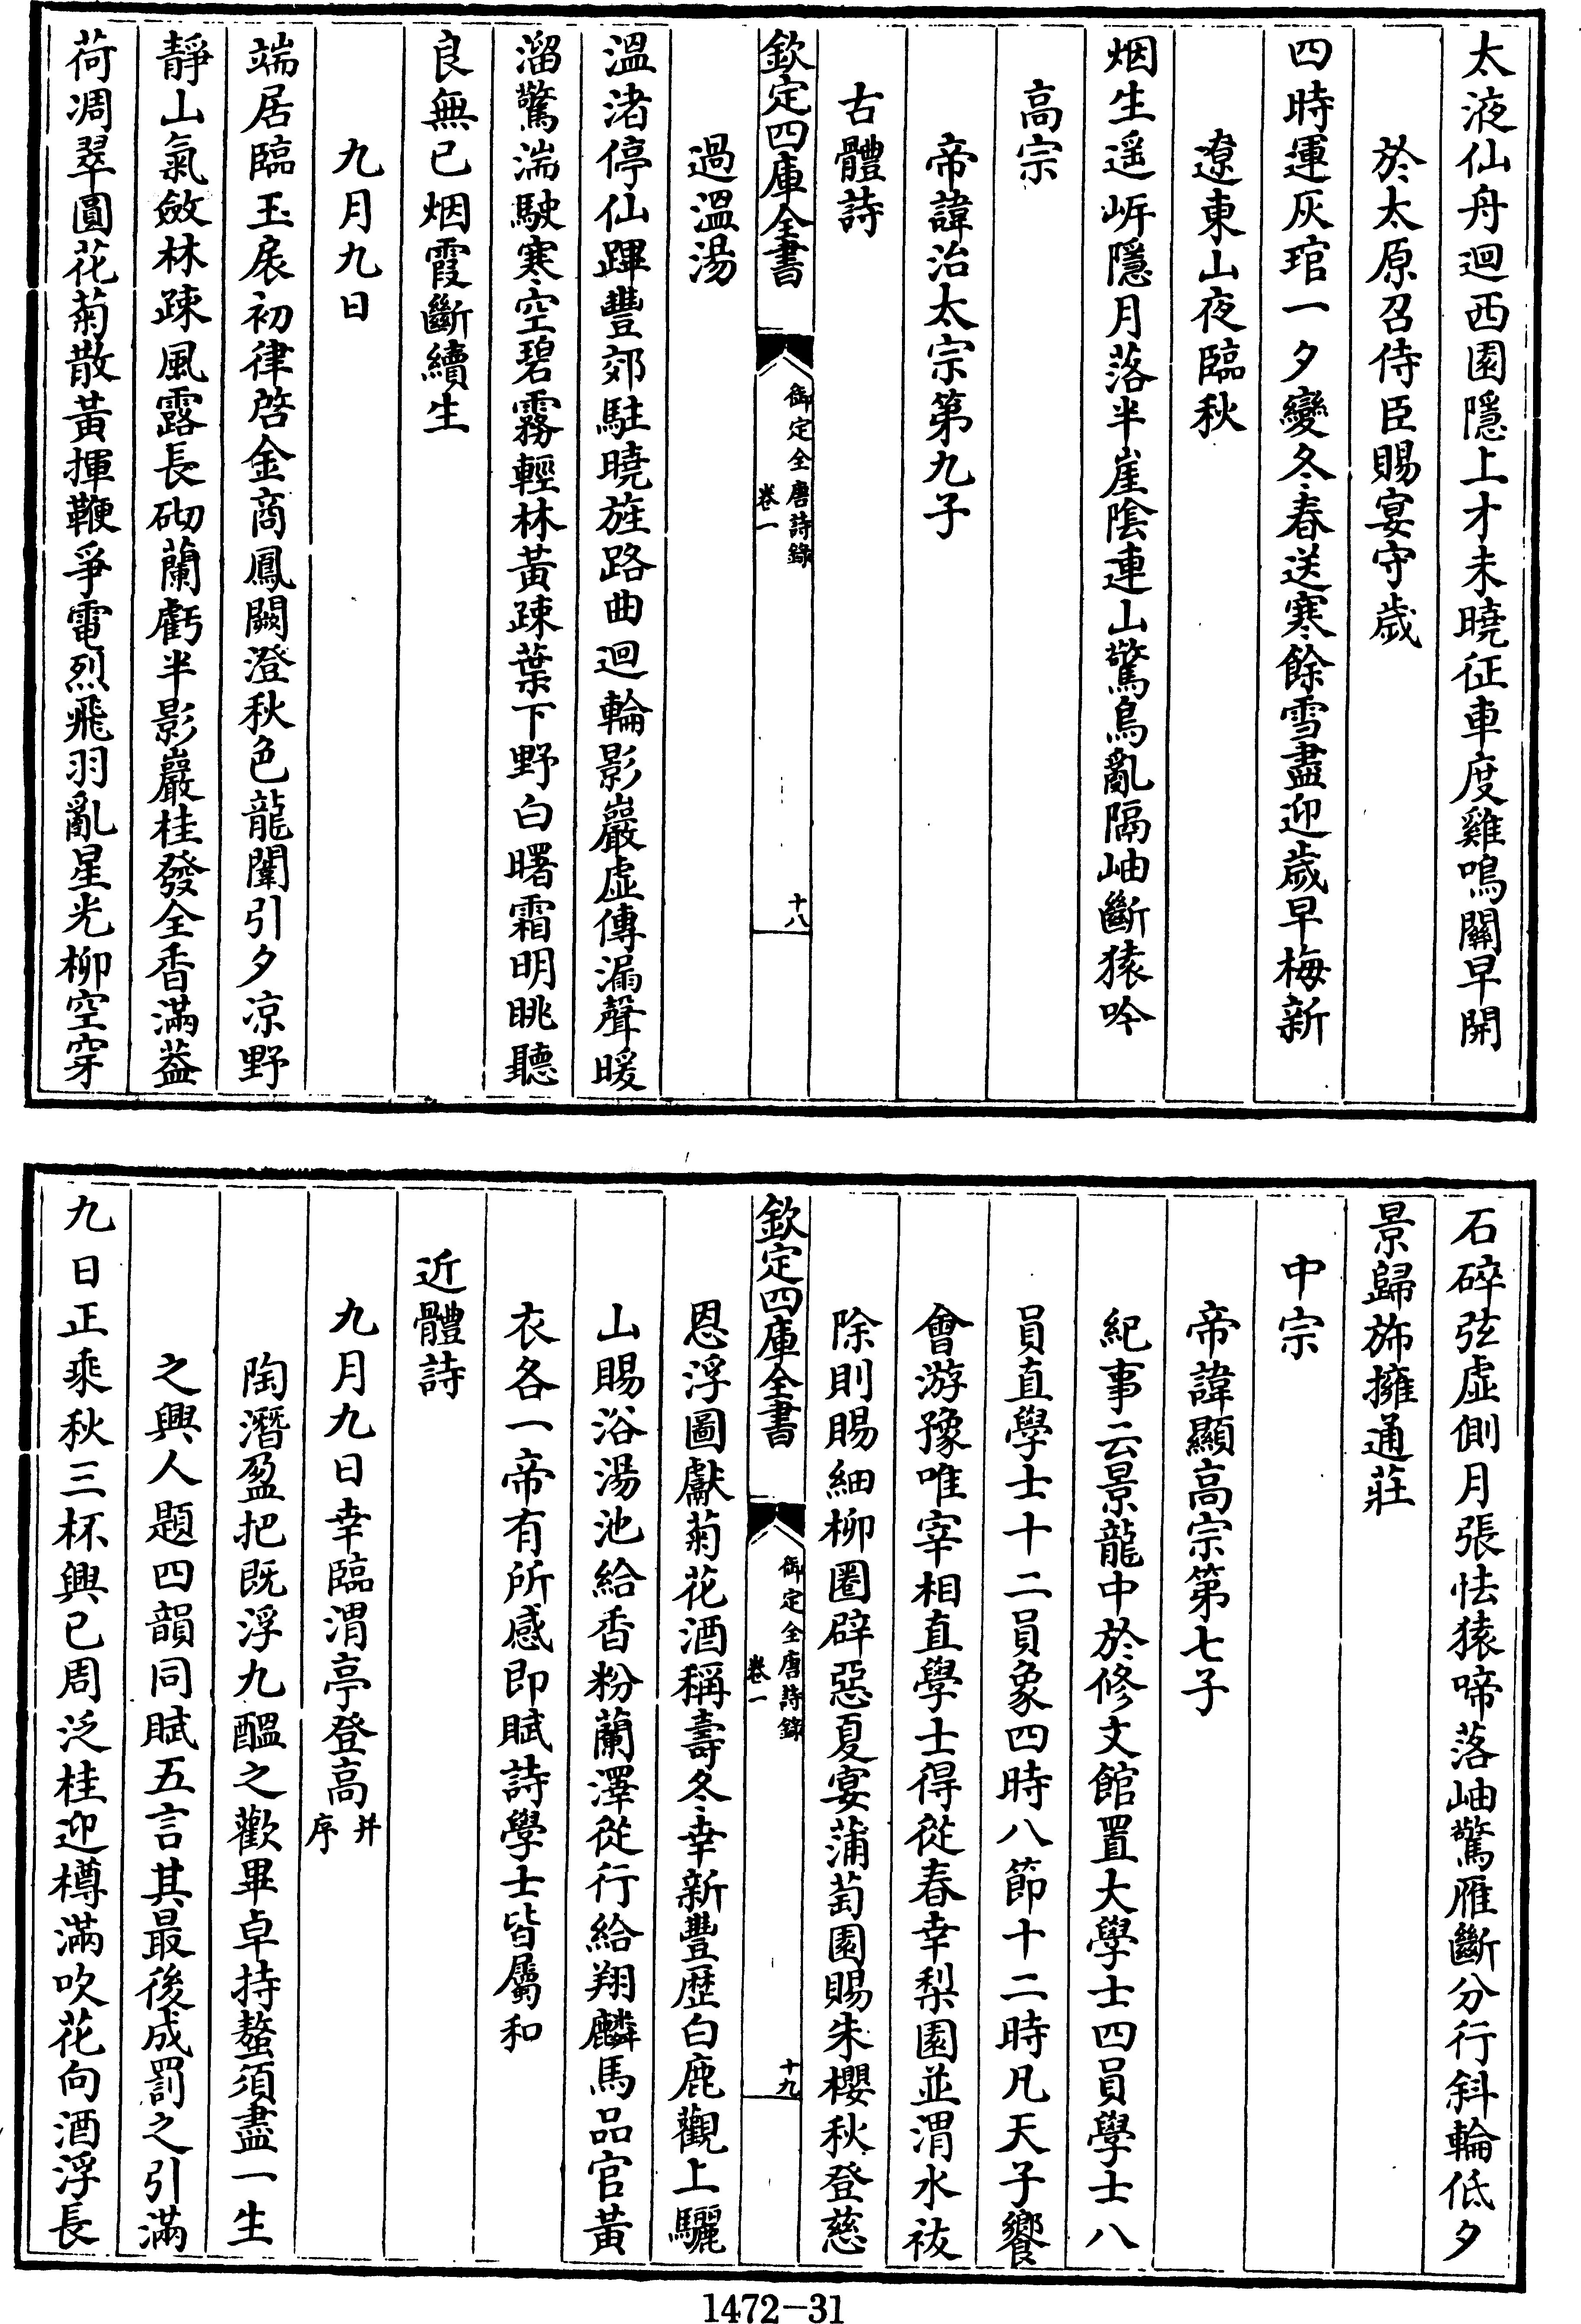 太液仙舟迥西園隱上才未曉征車度雞鳴關早開
於太原召侍臣賜宴守歲
四時運灰琯一夕變冬春送寒餘雪盡迎歲早梅新
遼東山夜臨秋
烟生遥岍隱月落半崖陰連山驚鳥亂隔岫斷猿吟
高宗
帝諱治太宗第九子
古體詩
欽定四庫全書
御定全唐詩錄
卷一
十八
過溫湯
溫渚停仙蹕豐郊駐曉旌路曲迴輪影巖虛傳漏聲暖
溜驚湍駛寒空碧霧輕林黃疎葉下野白曙霜明眺聽
良無已烟霞斷續生
九月九日
端居臨玉扆初律啓金商鳳闕澄秋色龍闈引夕凉野
靜山氣斂林疎風露長砌蘭虧半影巖桂發全香滿葢
荷凋翠圓花菊散黃揮鞭爭電烈飛羽亂星光柳空穿
石碎弦虛側月張怯猿啼落岫驚雁斷分行斜輪低夕
景歸斾擁通莊
中宗
帝諱顯高宗第七子
紀事云景龍中於修文館置大學士四員學士八
員直學士十二員象四時八節十二時凡天子饗
會游豫唯宰相直學士得從春幸梨園並渭水祓
除則賜細柳圈辟惡夏宴蒲萄園賜朱櫻秋登慈
欽定四庫全書
御定全唐詩錄
卷一
十九
恩浮圖獻菊花酒稱壽冬幸新豐歴白鹿觀上驪
山賜浴湯池給香粉蘭澤從行給翔麟馬品官黃
衣各一帝有所感即賦詩學士皆屬和
近體詩
九月九日幸臨渭亭登高并序
陶潛盈把既浮九醞之歡畢卓持螯須盡一生
之興人題四韻同賦五言其最後成罰之引滿
九日正乘秋三杯興已周泛桂迎樽滿吹花向酒浮長
1472-31